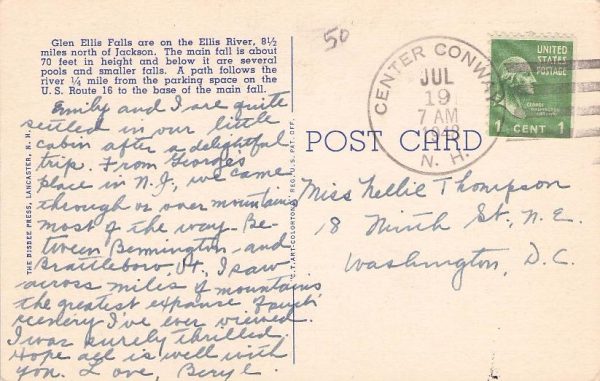 Glen Ellis Falls are on the Ellis River, 8½
miles north of Jackson. The main fall is about
70 feet in height and below it are several
pools and smaller falls. A path follows the
river ¼ mile from the parking space on the
U.S. Route 16 to the base of the main fall.
Emily and I are quite
settled in our little
cabin after a delightful
trip. From George's
place in N.J., we came
through or over mountains
most of the way. Be-
tween Bennington and
Brattleboro Vt., I saw
across miles of mountains
the greatest expanse of such
scenery I've ever viewed.
I was surely thrilled.
Hope all is well with
you. Love, Beryl.
THE BISBEE PRESS, LANCASTER, N. H.
C.T. ART-COLORTONE REG. U.S. PAT. OFF.
POST CARD
50
CENTER CONWAY
JUL
19
7 AM
N. H.
UNITED
STATES
POSTAGE
GEORGE
WASHINGTON
1 CENT 1
Miss Nellie Thompson
18 Ninth St., N.E.
Washington, D.C.